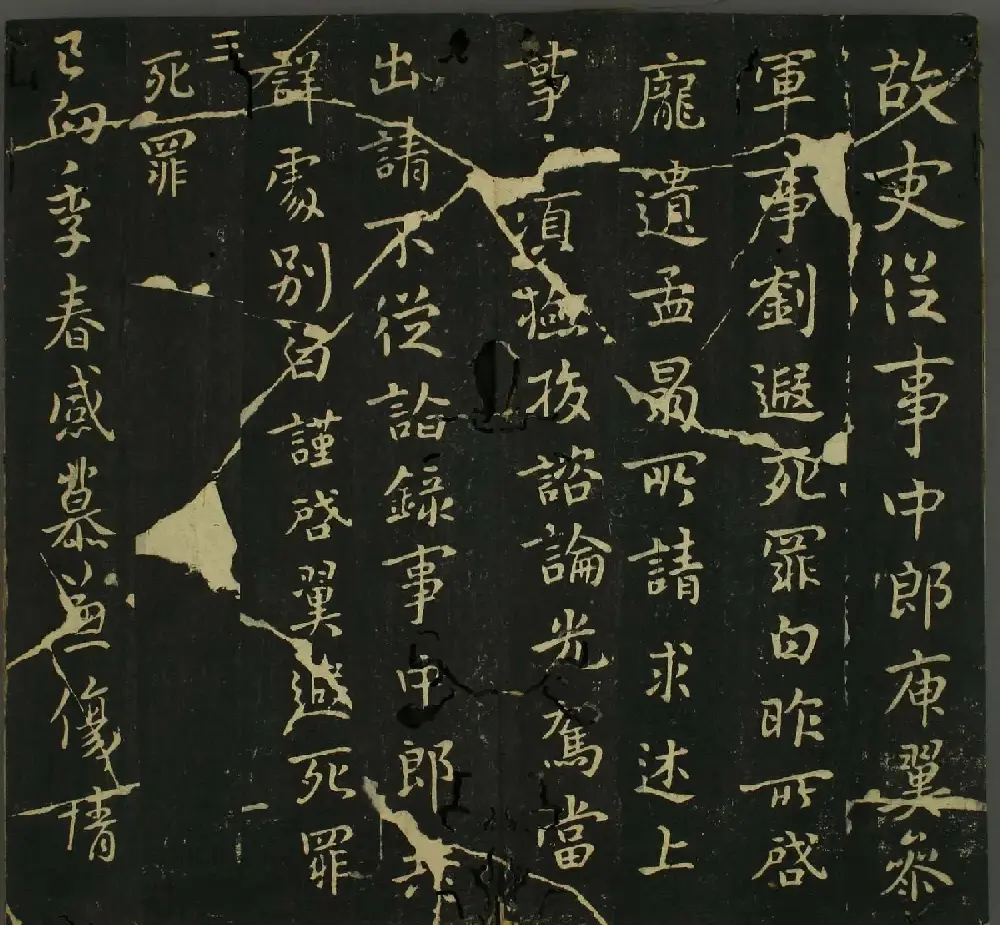 故吏從事中郎庾翼參
軍事劉遐死罪白昨所啓
龐遺孟昺所請求述上
事〻須檢校諮論光駕當
出請不從詣錄事中郎共
詳處別白謹啓翼遐死罪
三
死罪
已向季春感慕兼傷情